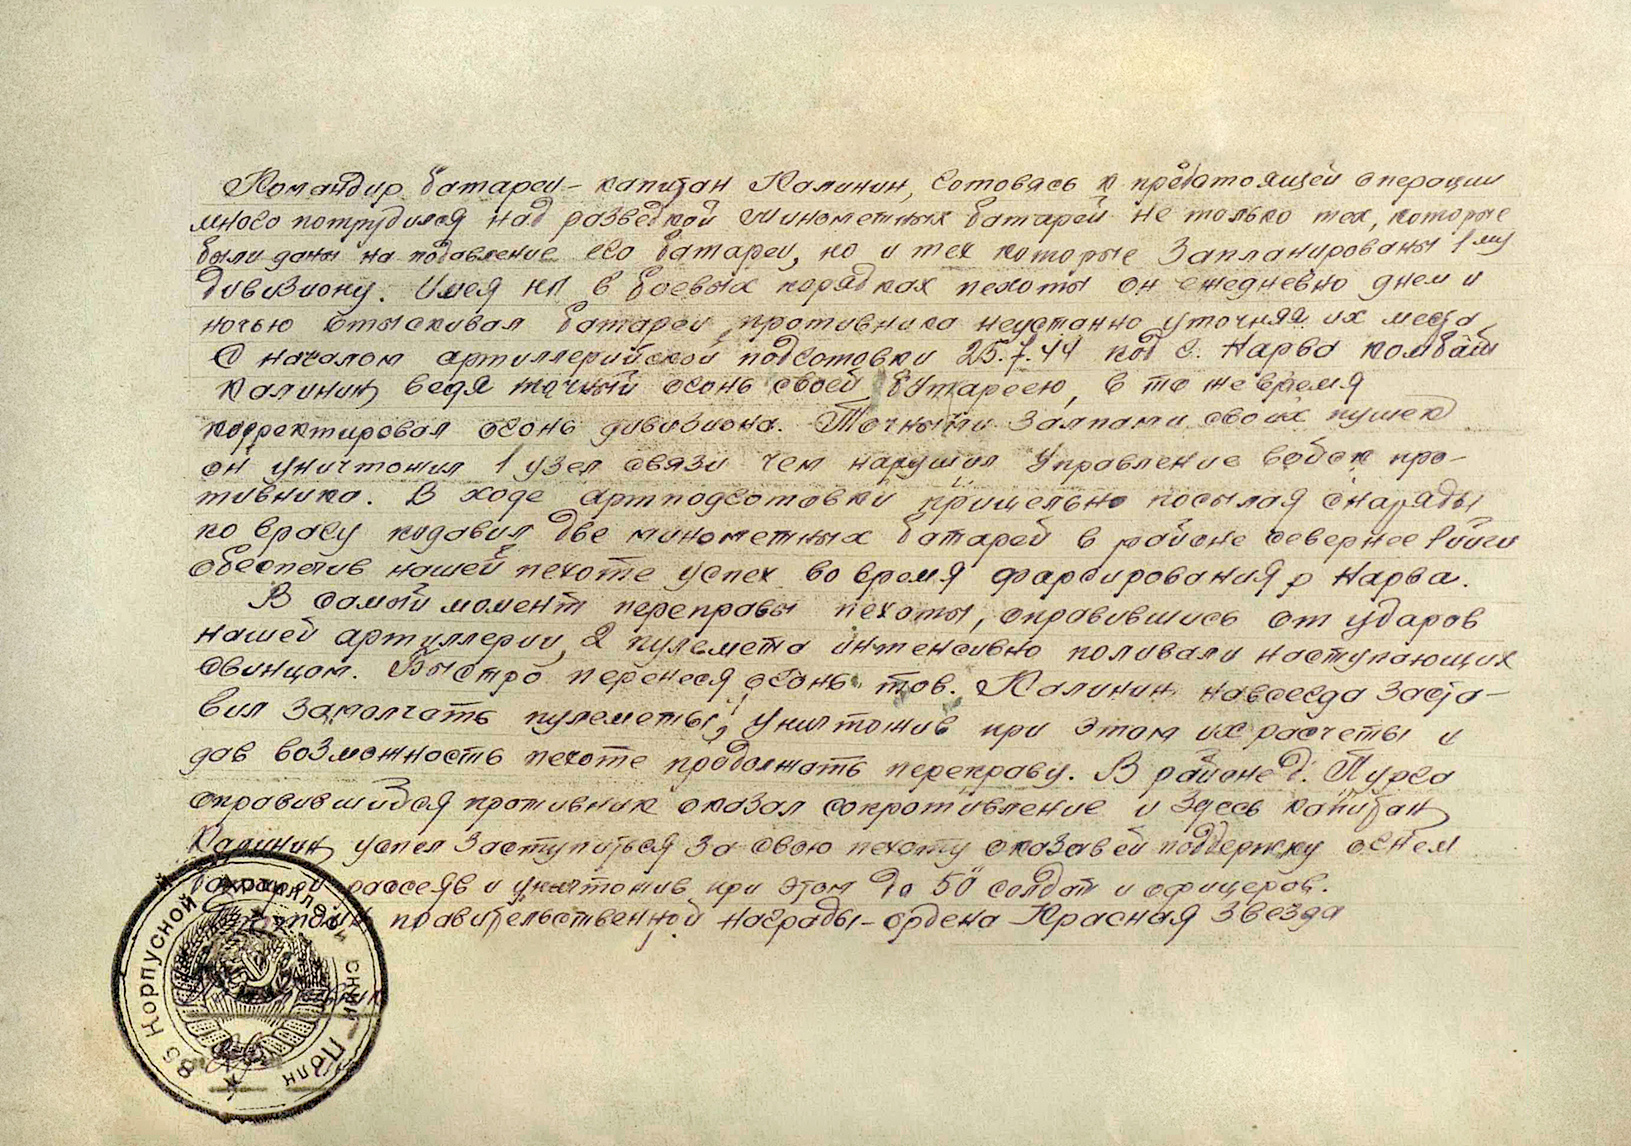 Командир батареи – капитан Калинин, готовясь к предстоящей операции
много потрудился над разведкой минометных батарей не только тех, которые
были даны на подавление его батареи, но и тех которые запланированы 1му
дивизиону. Имея нп в боевых порядках пехоты он ежедневно днем и
ночью отыскивал батареи противника неустанно уточняя их места
С началом артиллерийской подготовки 25.7.44 под г. Нарва комбат
Калинин ведя точный огонь своей батареею, в то же время
корректировал огонь дивизиона. Точными залпами своих пушек
он уничтожил 1 узел связи чем нарушил управление войск про-
тивника. В ходе артподготовки прицельно посылая снаряды
по врагу подавил две минометных батарей в районе севернее
обеспечив нашей пехоте успех во время фарсирования р Нарва.
В самый момент переправы пехоты, оправившись от ударов
нашей артиллерии, 2 пулемета интенсивно поливали наступающих
свинцом. Быстро перенеся огонь тов. Калинин навсегда заста-
вил замолчать пулеметы, уничтожив при этом их расчеты и
дав возможность пехоте продолжать переправу. В районе д. Пурга
оправившийся противник оказал сопротивление и здесь капитан
Калинин успел заступиться за свою пехоту оказав ей поддержку огнем
батареи рассеяв и уничтожив при этом до 50 солдат и офицеров.
правительственной награды – ордена Красная Звезда
86 Корпусной Артиллерийский Полк